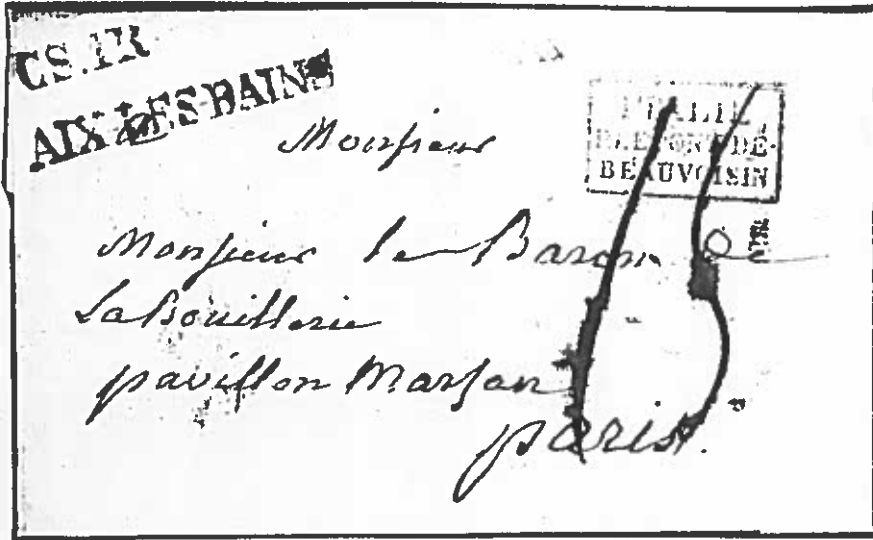 C.S.4R
AIX LES BAINS
Monsieur
ITALIE
PAR LE PONT-DE-
BEAUVOISIN
Monsieur le Baron de
LaBouillerie
pavillon Marsan
paris.
15